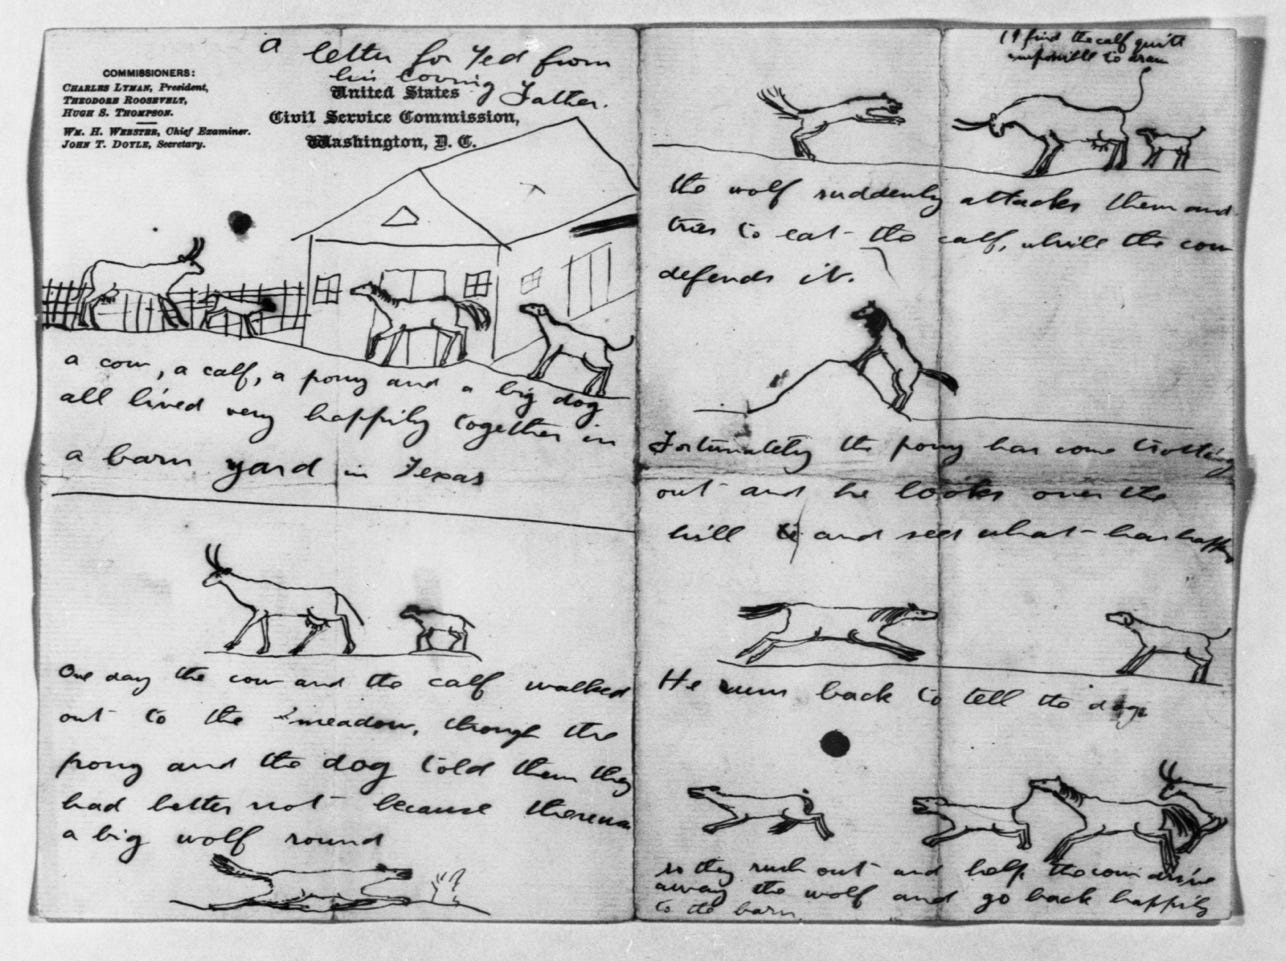 a letter for Ted from
his loving
Father.
COMMISSIONERS:
CHARLES LYMAN, President,
THEODORE ROOSEVELT,
HUGH S. THOMPSON.
WM. H. WEBSTER, Chief Examiner.
JOHN T. DOYLE, Secretary.
United States
Civil Service Commission,
Washington, D. C.
a cow, a calf, a pony and a big dog
all lived very happily together in
a barn yard in Texas
One day the cow and the calf walked
out to the meadow, though the
pony and the dog told them they
had better not because there was
a big wolf round
(I find the calf quite
impossible to draw
the wolf suddenly attacks them and
tries to eat the calf, while the cow
defends it.
Fortunately the pony has come trotting
out and he looks over the
hill and sees what has happen
He runs back to tell the dog
so they rush out and help the cow drive
away the wolf and go back happily
to the barn